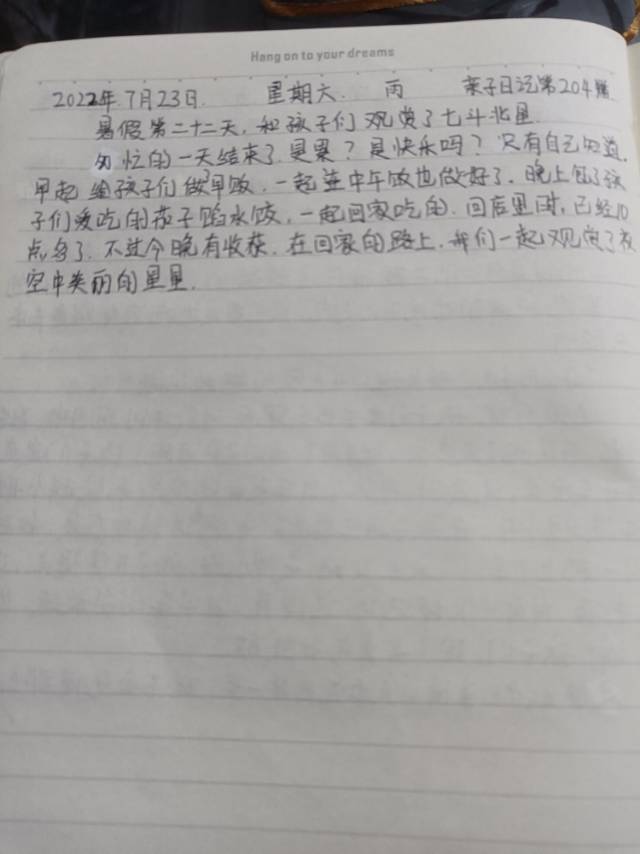 Hang on to your dreams
2022年7月23日. 星期六. 雨 亲子日记第204篇
暑假第二十二天, 和孩子们观赏了七斗北星.
匆忙的一天结束了. 是累? 是快乐吗? 只有自己知道.
早起给孩子们做早饭. 一起连中午饭也做好了. 晚上包了孩
子们爱吃的茄子馅水饺, 一起回家吃的. 回店里时, 已经10
点多了. 不过今晚有收获. 在回家的路上. 我们一起观赏了夜
空中美丽的星星.